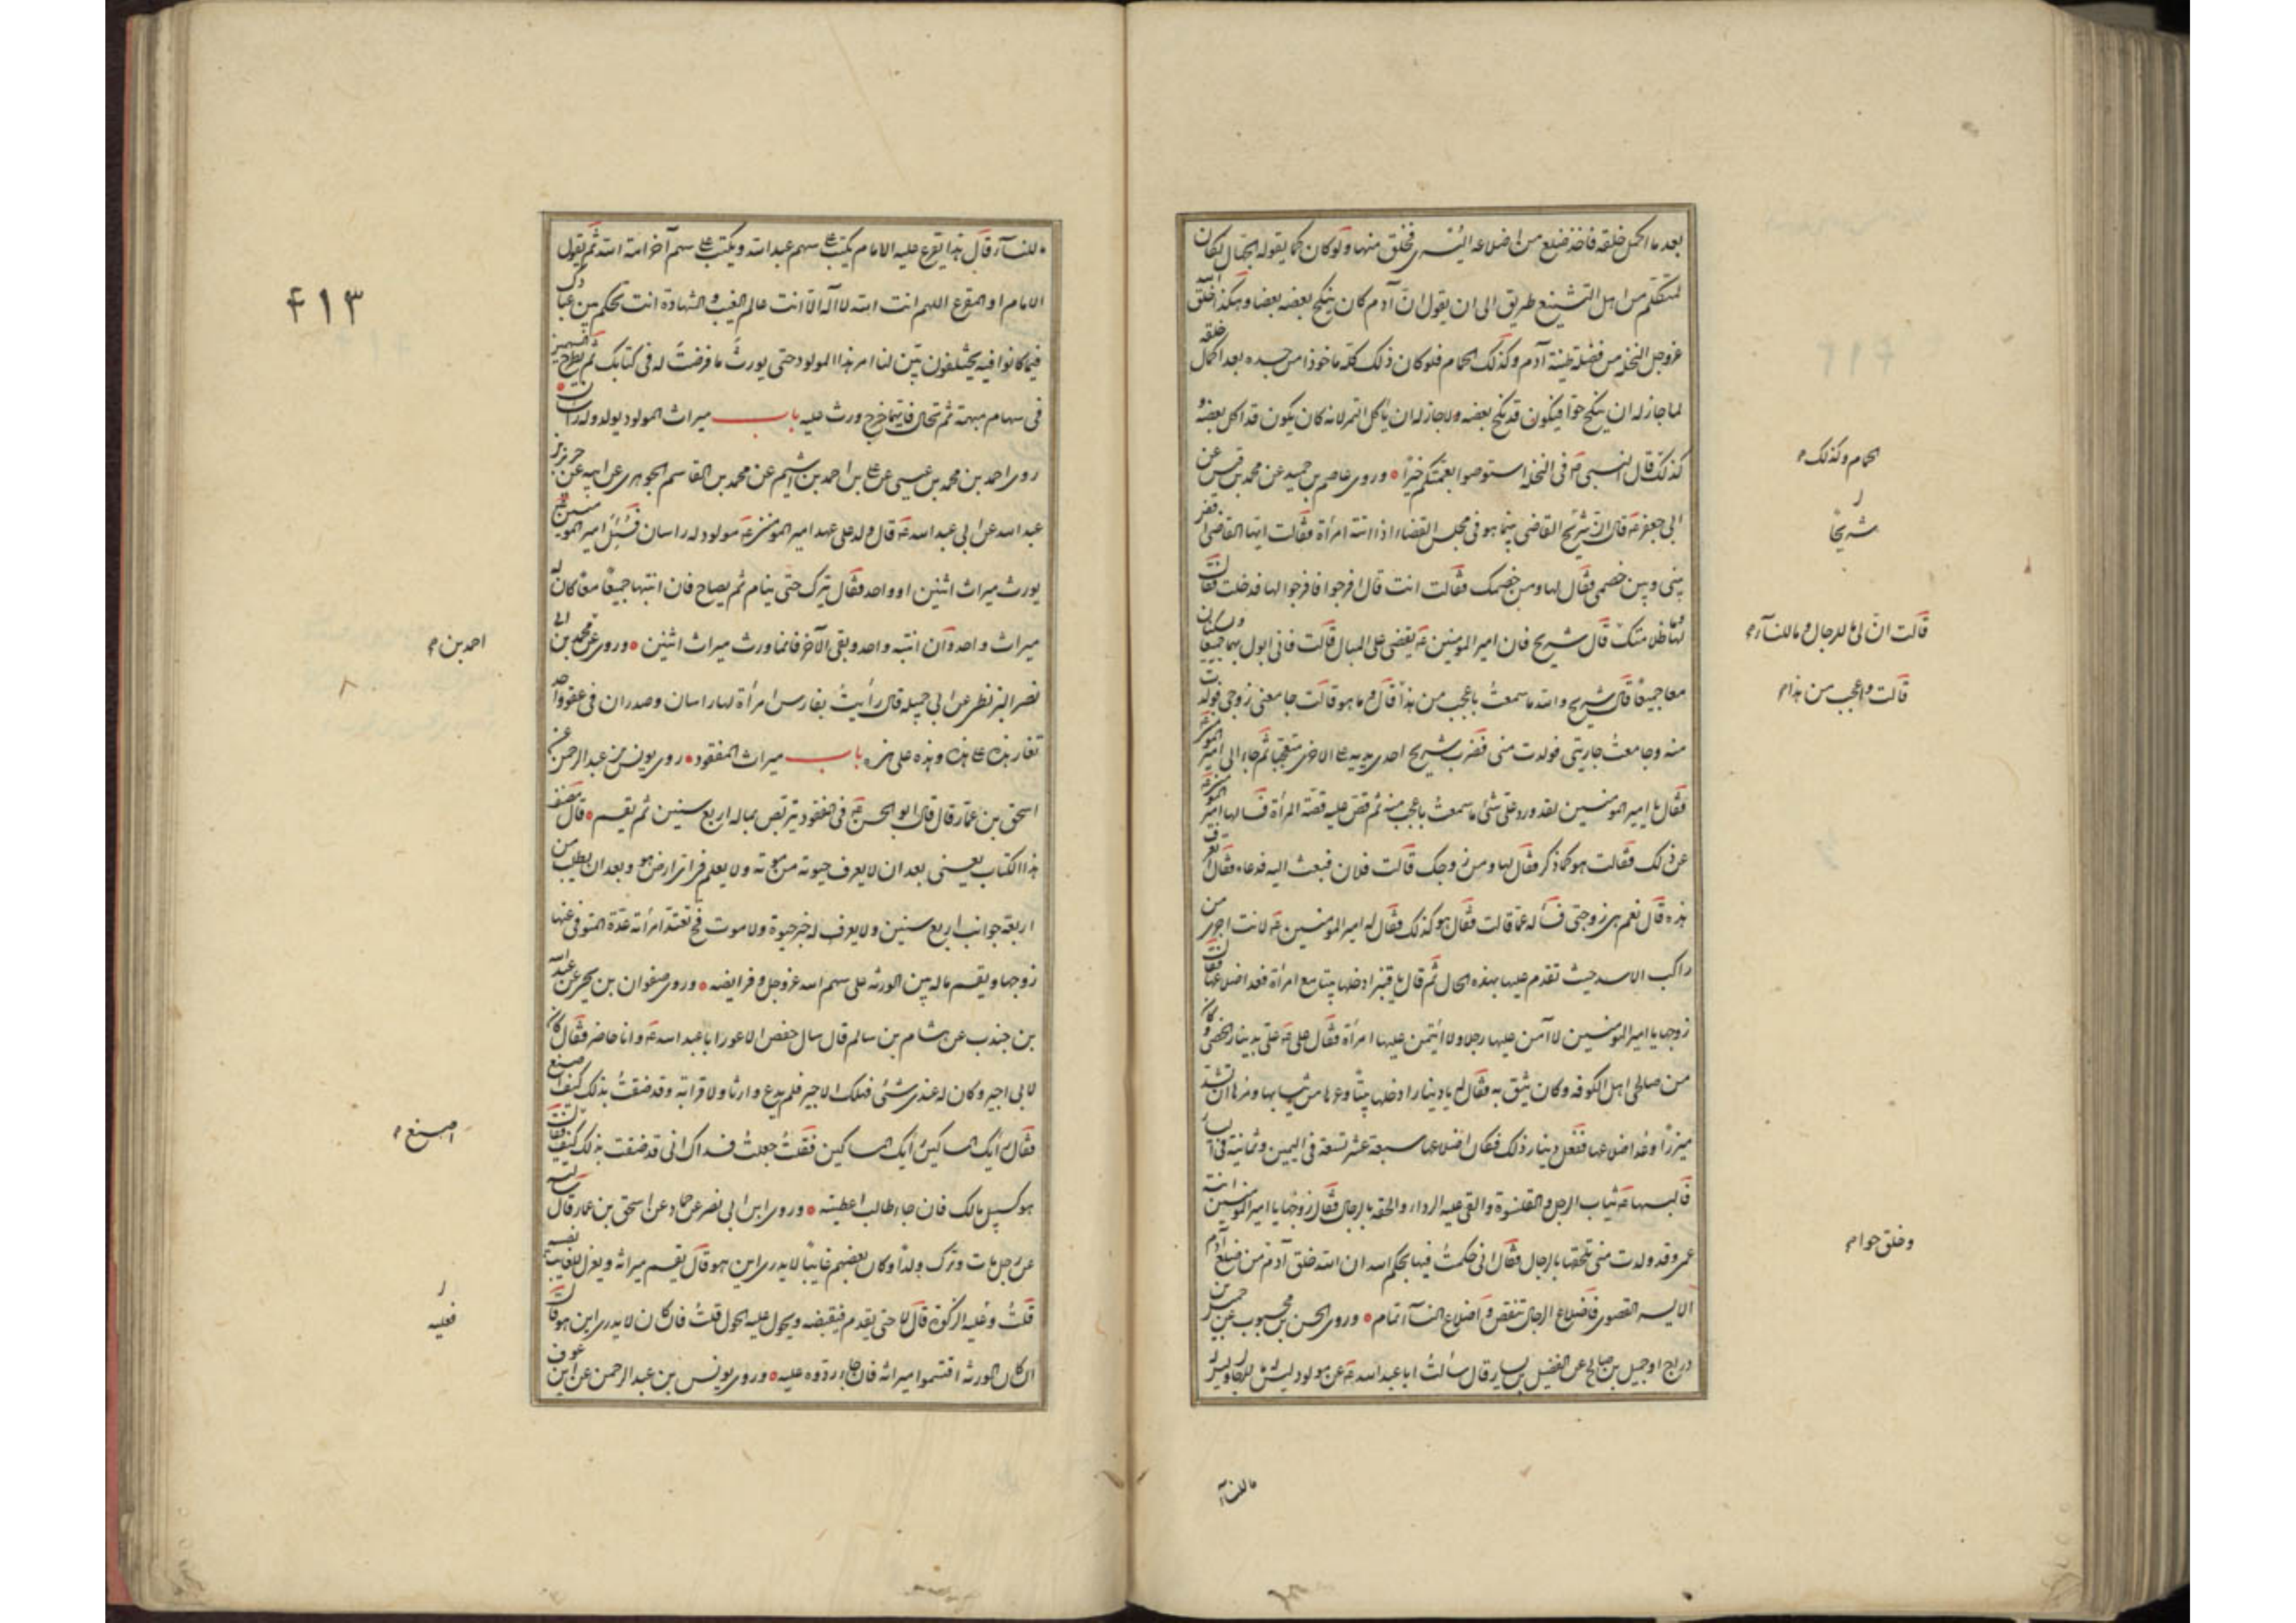 بعد ما اكمل خلقه فاخذ ضلع من اضلاعه اليسرى فخلق منها ولو كان كما يقوله الجهال لكان
لمتكلم من اهل التشنيع طريق الى ان يقول ان آدم كان ينكح بعضه بعضا وهكذا خلق الله
عزوجل النخلة من فضلة طينة آدم وكذلك الحمام فلو كان ذلك كله ماخوذا من جسده بعد اكمال خلقه
لما جاز له ان ينكح حوا فيكون قد نكح بعضه ولا جاز له ان ياكل التمر لانه كان يكون قد اكل بعضه و
كذلك قال النبي ص في النخلة استوصوا بعمتكم خيرا وروى عاصم بن حميد عن محمد بن قيس عن
ابي جعفر ع قال ان شريح القاضي بينما هو في مجلس القضاء اذ اتته امرأة فقالت ايها القاضي اقض
بيني وبين خصمي فقال لها ومن خصمك فقالت انت قال افرجوا فافرجوا لها فدخلت فقال
لها وما ظلامتك قال شريح فان امير المؤمنين ع يقضي على المبال قالت فاني ابول بهما جميعا ويسكنان
معا جميعا قال شريح والله ما سمعت باعجب من هذا قال وما هو قالت جامعني زوجي فولدت
منه وجامعت جاريتي فولدت مني فضرب شريح احدى يديه على الاخرى متعجبا ثم جاء الى امير المؤمنين
فقال يا امير المؤمنين لقد ورد على شئ ما سمعت باعجب منه ثم قص عليه قصة المرأة فسألها امير المؤمنين ع
عن ذلك فقالت هو كما ذكر فقال لها ومن زوجك قالت فلان فبعث اليه فدعاه فقال اتعرف
هذه قال نعم هي زوجتي فسأله عما قالت فقال هو كذلك فقال له امير المؤمنين ع لانت اجرى من
راكب الاسد حيث تقدم عليها بهذه الحال ثم قال يا قنبر ادخلها بيتا مع امرأة فعد اضلاعها فقال
زوجها يا امير المؤمنين لا آمن عليها رجلا ولا ائتمن عليها امرأة فقال علي ع علي بدينار الخصي وكان
من صالحي اهل الكوفه وكان يثق به فقال له يا دينار ادخلها بيتا وعرها من ثيابها ومرها ان تشد
ميزرا وعد اضلاعها ففعل دينار ذلك فكان اضلاعها سبعة عشر تسعة في اليمين وثمانية في اليسار
فالبسها ع ثياب الرجل والقلنسوة والقى عليه الرداء والحقه بالرجال فقال زوجها يا امير المؤمنين ابنة
عمي وقد ولدت مني تلحقها بالرجال فقال اني حكمت فيها بحكم الله ان الله خلق آدم من ضلع آدم
الايسر القصوى فاضلاع الرجال تنقص واضلاع النساء تمام وروى الحسن بن محبوب عن جميل بن
دراج او جميل بن صالح عن الفضيل بن يسار قال سألت ابا عبد الله ع عن مولود ليس له ما للرجال وليس له
ما للنساء
الحمام وكذلك م
شريحا
قالت ان لي ما للرجال وما للنساء م
قالت واعجب من هذا م
وخلق حوا م
ما للنساء قال هذا يقرع عليه الامام يكتب على سهم عبد الله ويكتب على سهم آخر امة الله ثم يقول
الامام او المقرع اللهم انت الله لا اله الا انت عالم الغيب والشهادة انت تحكم بين عبادك
فيما كانوا فيه يختلفون بين لنا امر هذا المولود حتى يورث ما فرضت له في كتابك ثم يطرح السهمين
في سهام مبهمة ثم تجال فايهما خرج ورث عليه باب ميراث المولود يولد وله رأسان
روى احمد بن محمد بن عيسى عن علي بن احمد بن اشيم عن محمد بن القاسم الجوهري عن ابيه عن حريز بن
عبد الله عن ابي عبد الله ع قال ولد على عهد امير المؤمنين ع مولود له راسان فسئل امير المؤمنين ع
يورث ميراث اثنين او واحد فقال يترك حتى ينام ثم يصاح فان انتبها جميعا معا كان له
ميراث واحد وان انتبه واحد وبقي الآخر فانما ورث ميراث اثنين وروى عن محمد بن ابي
نصر البزنطي عن ابي جميلة قال رأيت بفارس امرأة لها راسان وصدران في حقو واحد
تغار هذه على هذه وهذه على هذه باب ميراث المفقود روى يونس بن عبد الرحمن عن
اسحق بن عمار قال قال ابو الحسن ع في المفقود يتربص بماله اربع سنين ثم يقسم قال مصنف
هذا الكتاب يعني بعد ان لا يعرف حيوته من موته ولا يعلم في اي ارض هو وبعد ان يطلب من
اربعة جوانب اربع سنين ولا يعرف له خبر حيوة ولا موت فح تعتد امرأته عدة المتوفى عنها
زوجها ويقسم ماله بين الورثه على سهم الله عزوجل وفرايضه وروى صفوان بن يحيى عن عبد الله
بن جندب عن هشام بن سالم قال سال حفص الاعور ابا عبد الله ع وانا حاضر فقال كان
لابي اجير وكان له عنده شئ فهلك الاجير فلم يدع وارثا ولا قرابة وقد ضقت بذلك كيف اصنع
فقال رأيك المساكين رأيك المساكين فقلت جعلت فداك اني قد ضقت بذلك كيف فقال
هو كسبيل مالك فان جاء طالب اعطيته وروى ابن ابي نصر عن حماد عن اسحق بن عمار قال سألته
عن رجل مات وترك ولدا وكان بعضهم غايبا لا يدرى اين هو قال يقسم ميراثه ويعزل للغايب نصيبه
قلت وعليه الزكوة قال لا حتى يقدم فيقبضه ويحول عليه الحول قلت فان كان لا يدرى اين هو قال
ان كان الورثة اقتسموا ميراثه فان جاء ردوه عليه وروى يونس بن عبد الرحمن عن ابن عوف
٤١٣
احمد بن م
اصنع م
فعليه